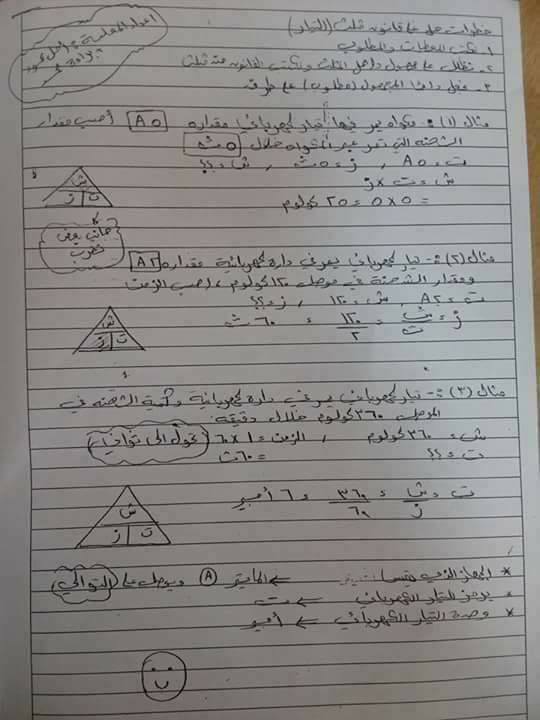 خطوات حل على قانون مثلث (التيار)
١- نكتب المعطيات والمطلوب
٢- نظلل على مجهول داخل المثلث ونكتب القانون من مثلث
٣- نجعل دائما المجهول (مطلوب) على طرف
اعداد المعلمة
مثال (١) :- نواه يمر فيها تيار كهربائيا مقداره A٥ أحسب مقدار
الشحنه التي تمر عبر النواه خلال ٥ث
ت= A٥ , ز= ٥ث , ش=؟؟
ش= ت×ز
= ٥×٥ = ٢٥ كولوم
ش
ت ز
مثال (٢) :- تيار كهربائي يمر في داره كهربائية مقداره A٢
ومقدار الشحنة في موصل ١٢٠ كولوم ، احسب الزمن
ت= A٢ , ش= ١٢٠ , ز=؟؟
ز= ش/ت = ١٢٠/٢ = ٦٠ ث
ش
ت ز
مثال (٣) :- تيار كهربائي يمر في داره كهربائية وكمية الشحنه في
الموصل ٣٦٠ كولوم خلال دقيقة
ش= ٣٦٠ كولوم , الزمن= ١×٦٠ نحول الى ثواني
ت=؟؟ = ٦٠ث
ت= ش/ز = ٣٦٠/٦٠ = ٦ أمبير
ش
ت ز
* الجهاز الذي يقيس ← A ويوصل على التوالي
* يرمز التيار الكهربائي ← ت
* وحدة التيار الكهربائي ← أمبير